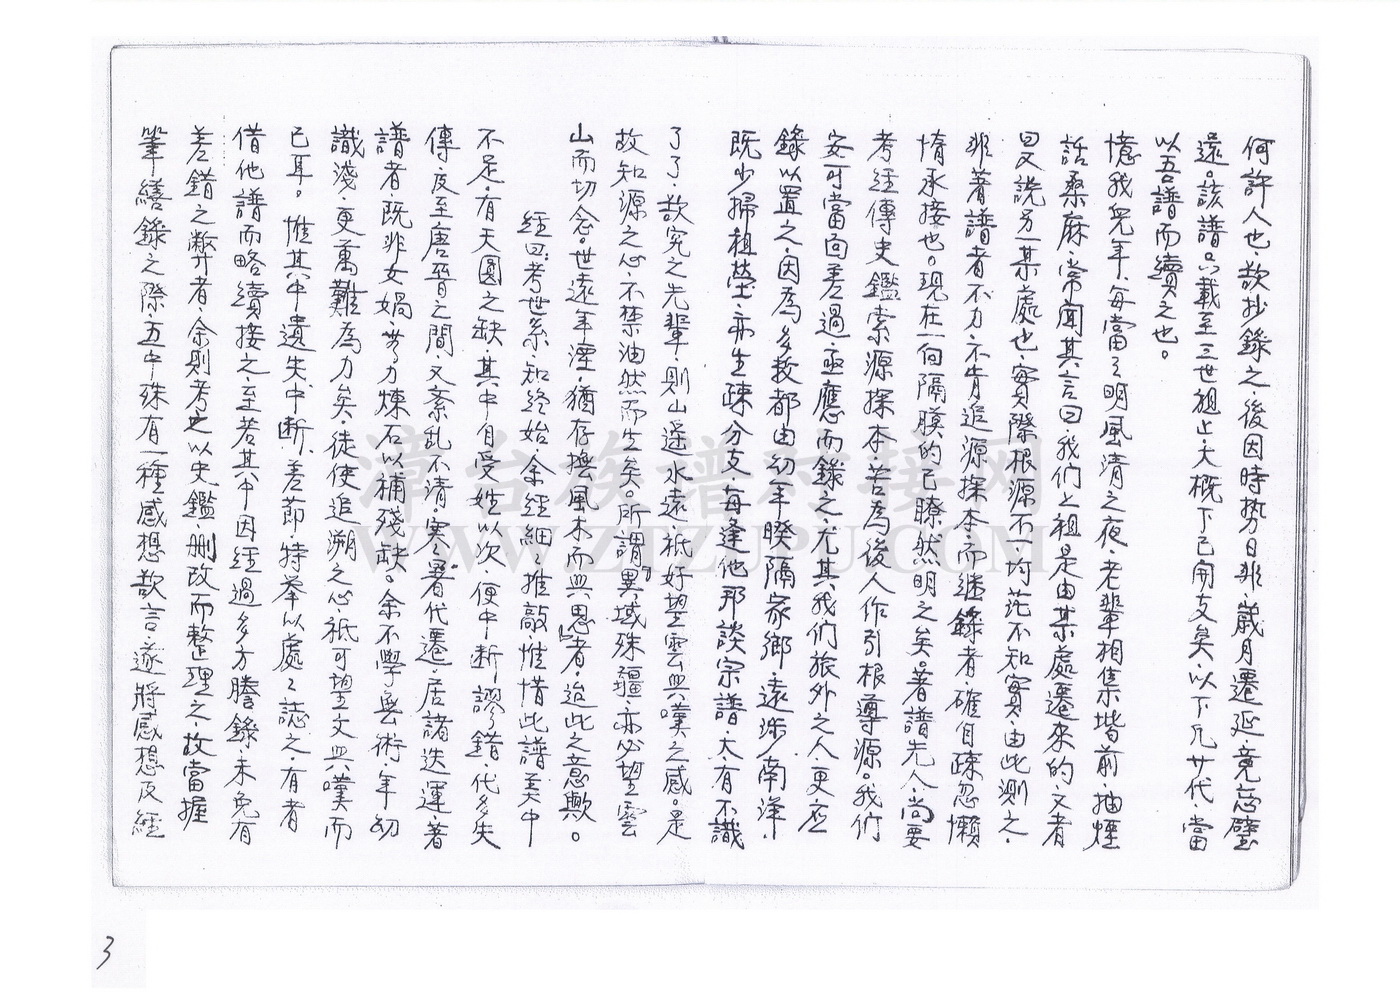 何許人也、欲抄錄之、後因時勢日非、歲月遷延竟忘壁
遠。該譜只載至三世祖止大概下已開支矣、以下凡廿代、當
以吾譜而續之也。
憶我兒年、每當月明風清之夜、老輩相集堦前、抽煙
話桑麻、常聞其言曰我們之祖是由某處遷來的、又者
曰又說另一某處也、實際根源不可何茫不知實、由此測之、
非著譜者不力、不肯追源探本而継錄者、確自疎忽懶
惰承接也。現在一向隔膜的已瞭然明之矣。著譜先人、尚要
考经傳史鑑索源探本苦為後人作引根導源。我們
安可當面差過、亟應而錄之、尤其我們旅外之人、更应
錄以置之、因為多数都由幼年暌隔家鄉、遠涉南洋、
既少掃祖塋、亦生疎分支、每逢他那談宗譜、大有不識
了了、欲究之先輩、則山遥水遠、祗好望雲興嘆之感。是
故知源之心、不禁油然而生矣。所謂異域殊疆、亦必望雲
山而切念。世遠年湮、猶存撫風木而興思者、迨此之意歟。
經曰：考世系、知终始、余经細推敲、惟惜此譜美中
不足、有天圓之缺、其中自受姓以次、便中断謬錯、代多失
傳、及至唐晋之間、又紊乱不清。寒暑代遷、居諸迭運、著
譜者既非女媧、費力煉石以補殘缺。余不學無術、年幼
識淺、更萬難為力矣、徒使追溯之心、祗可望文興嘆而
已耳。惟其中遺失中断、差節、特举以處之誌之、有者
借他譜而略續接之、至若其中因经過多方謄錄、未免有
差錯之弊者、余則考之以史鑑、删改而整理之、故當握
筆繕錄之際、五中殊有一種感想欲言、遂將感想及經
3
漳台族谱对接网
WWW.ZTZUPU.COM